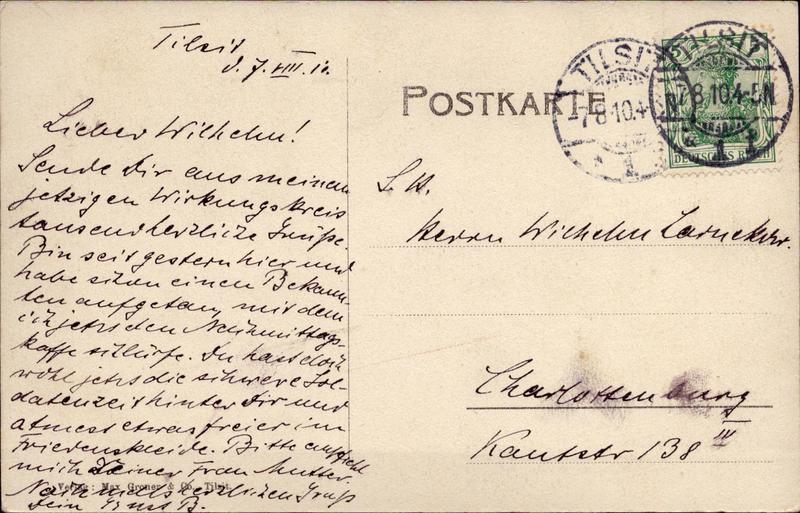 Tilsit
d. 7. VIII. 10.
Lieber Wilhelm!
Sende Dir aus meinem
jetzigen Wirkungskreis
tausend herzliche Grüße.
Bin seit gestern hier und
habe schon einen Bekann-
ten aufgetan, mit dem
ich jetzt den Nachmittags-
kaffe schlürfe. Du hast doch
wohl jetzt die schwere Sol-
datenzeit hinter Dir und
atmest etwas freier im
Friedenskleide. Bitte empfiehl
mich Deiner Frau Mutter.
Nochmals herzlichen Gruß
Dein Ernst B.
Verlag: Max Groner & Co., Tilsit.
POSTKARTE
TILSIT
7.8.10.4-5N
* 1 *
TILSIT
7.8.10.4-5N
* 1 *
DEUTSCHES REICH
S. H.
Herrn Wilhelm
Charlottenburg
Kantstr 138 III